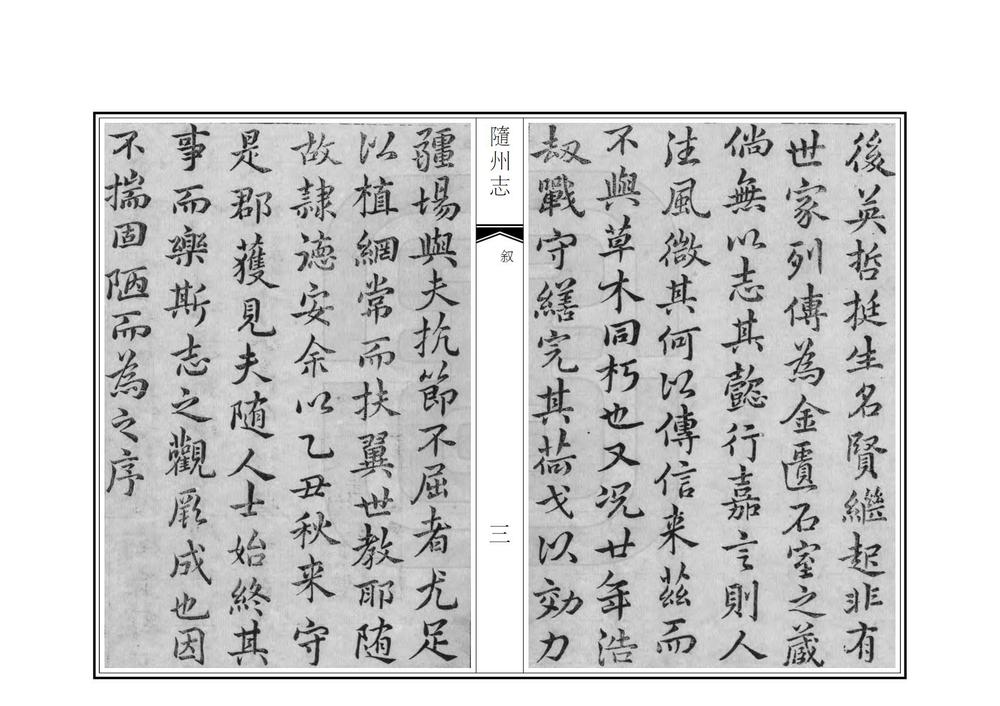 後英哲挺生名賢繼起非有
世家列傳為金匱石室之蔵
倘無以志其懿行嘉言則人
注風微其何以傳信来茲而
不與草木同朽也又况廿年浩
刼戰守繕完其荷戈以効力
隨州志
叙
三
疆埸與夫抗節不屈者尤足
以植綱常而扶翼世教耶随
故隷德安余以乙丑秋来守
是郡獲見夫随人士始終其
事而樂斯志之觀厥成也因
不揣固陋而為之序